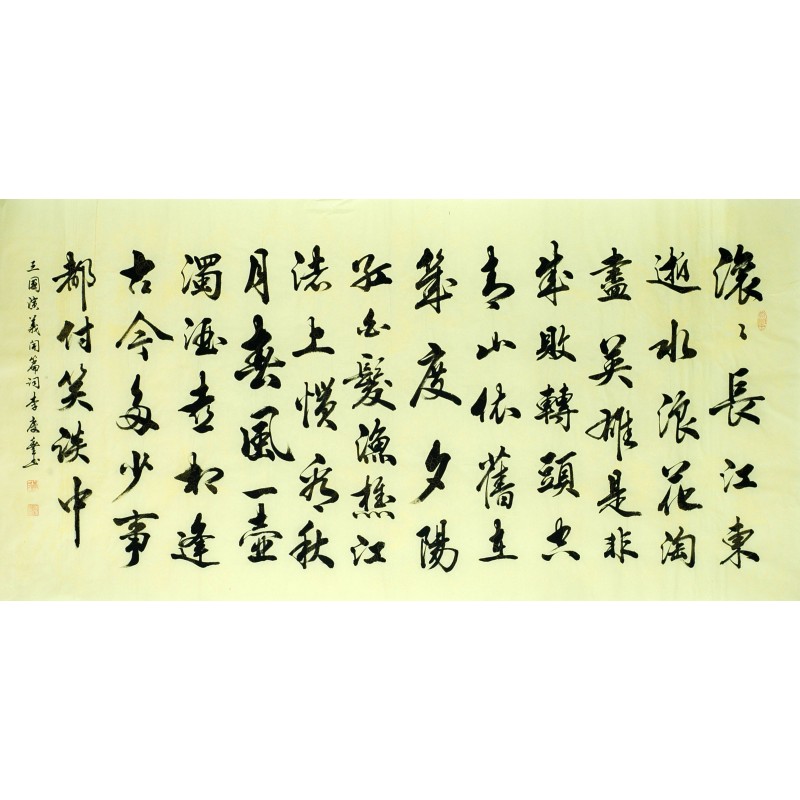 滾〻長江東
逝水浪花淘
盡英雄是非
成敗轉頭空
青山依舊在
幾度夕陽
紅白髮漁樵江
渚上慣看秋
月春風一壺
濁酒喜相逢
古今多少事
都付笑談中
三國演義開篇詞李